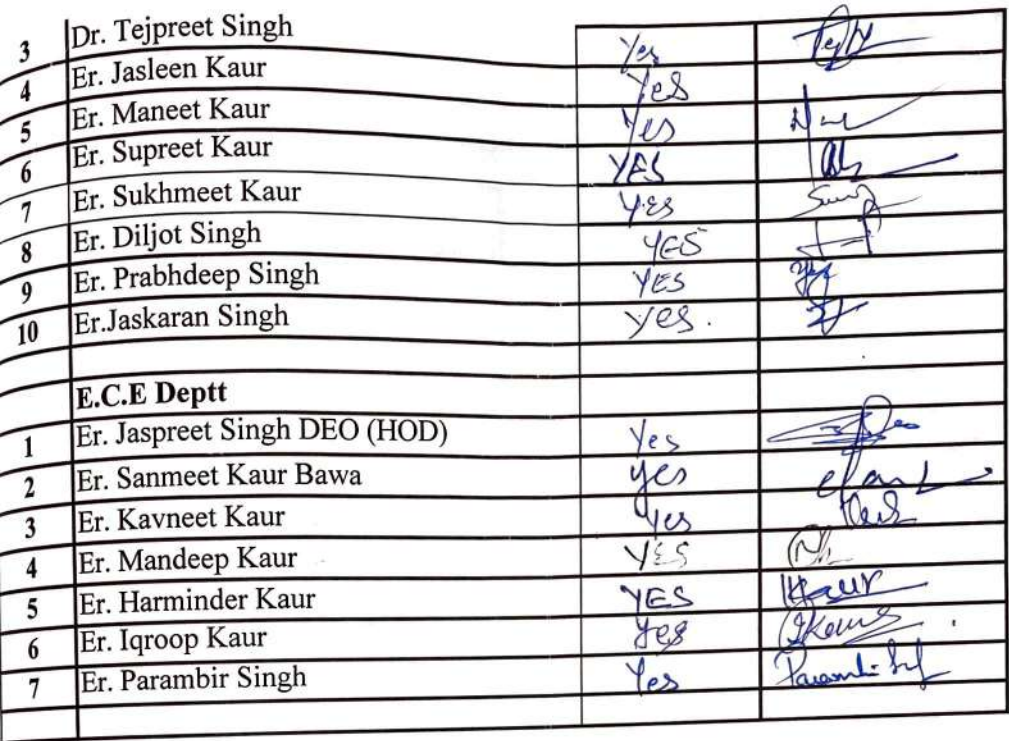 3 Dr. Tejpreet Singh Yes
4 Er. Jasleen Kaur Yes
5 Er. Maneet Kaur Yes
6 Er. Supreet Kaur YES
7 Er. Sukhmeet Kaur Yes
8 Er. Diljot Singh YES
9 Er. Prabhdeep Singh YES
10 Er.Jaskaran Singh Yes.
E.C.E Deptt
1 Er. Jaspreet Singh DEO (HOD) Yes
2 Er. Sanmeet Kaur Bawa yes
3 Er. Kavneet Kaur Yes
4 Er. Mandeep Kaur YES
5 Er. Harminder Kaur YES HKaur
6 Er. Iqroop Kaur Yes
7 Er. Parambir Singh Yes